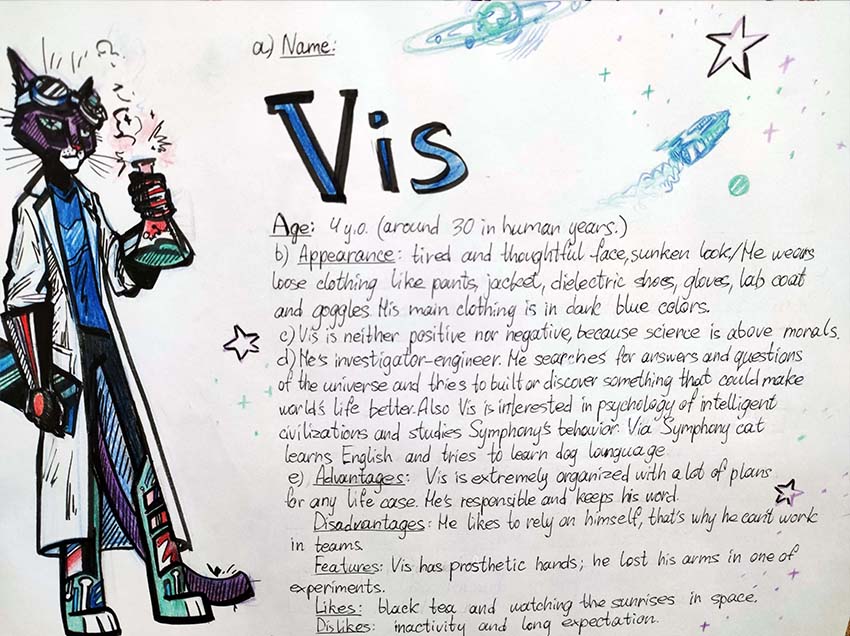 a) Name:
Vis
Age: 4 y.o. (around 30 in human years.)
b) Appearance: tired and thoughtful face, sunken look/He wears
loose clothing like pants, jacket, dielectric shoes, gloves, lab coat
and goggles. His main clothing is in dark blue colors.
c) Vis is neither positive nor negative, because science is above morals.
d) He's investigator-engineer. He searches for answers and questions
of the universe and tries to built or discover something that could make
world's life better. Also Vis is interested in psychology of intelligent
civilizations and studies Symphony's behavior. Via Symphony cat
learns English and tries to learn dog lounguage.
e) Advantages: Vis is extremely organized with a lot of plans
for any life case. He's responsible and keeps his word.
Disadvantages: He likes to rely on himself, that's why he can't work
in teams.
Features: Vis has prosthetic hands; he lost his arms in one of
experiments.
Likes: black tea and watching the sunrises in space.
Dislikes: inactivity and long expectation.